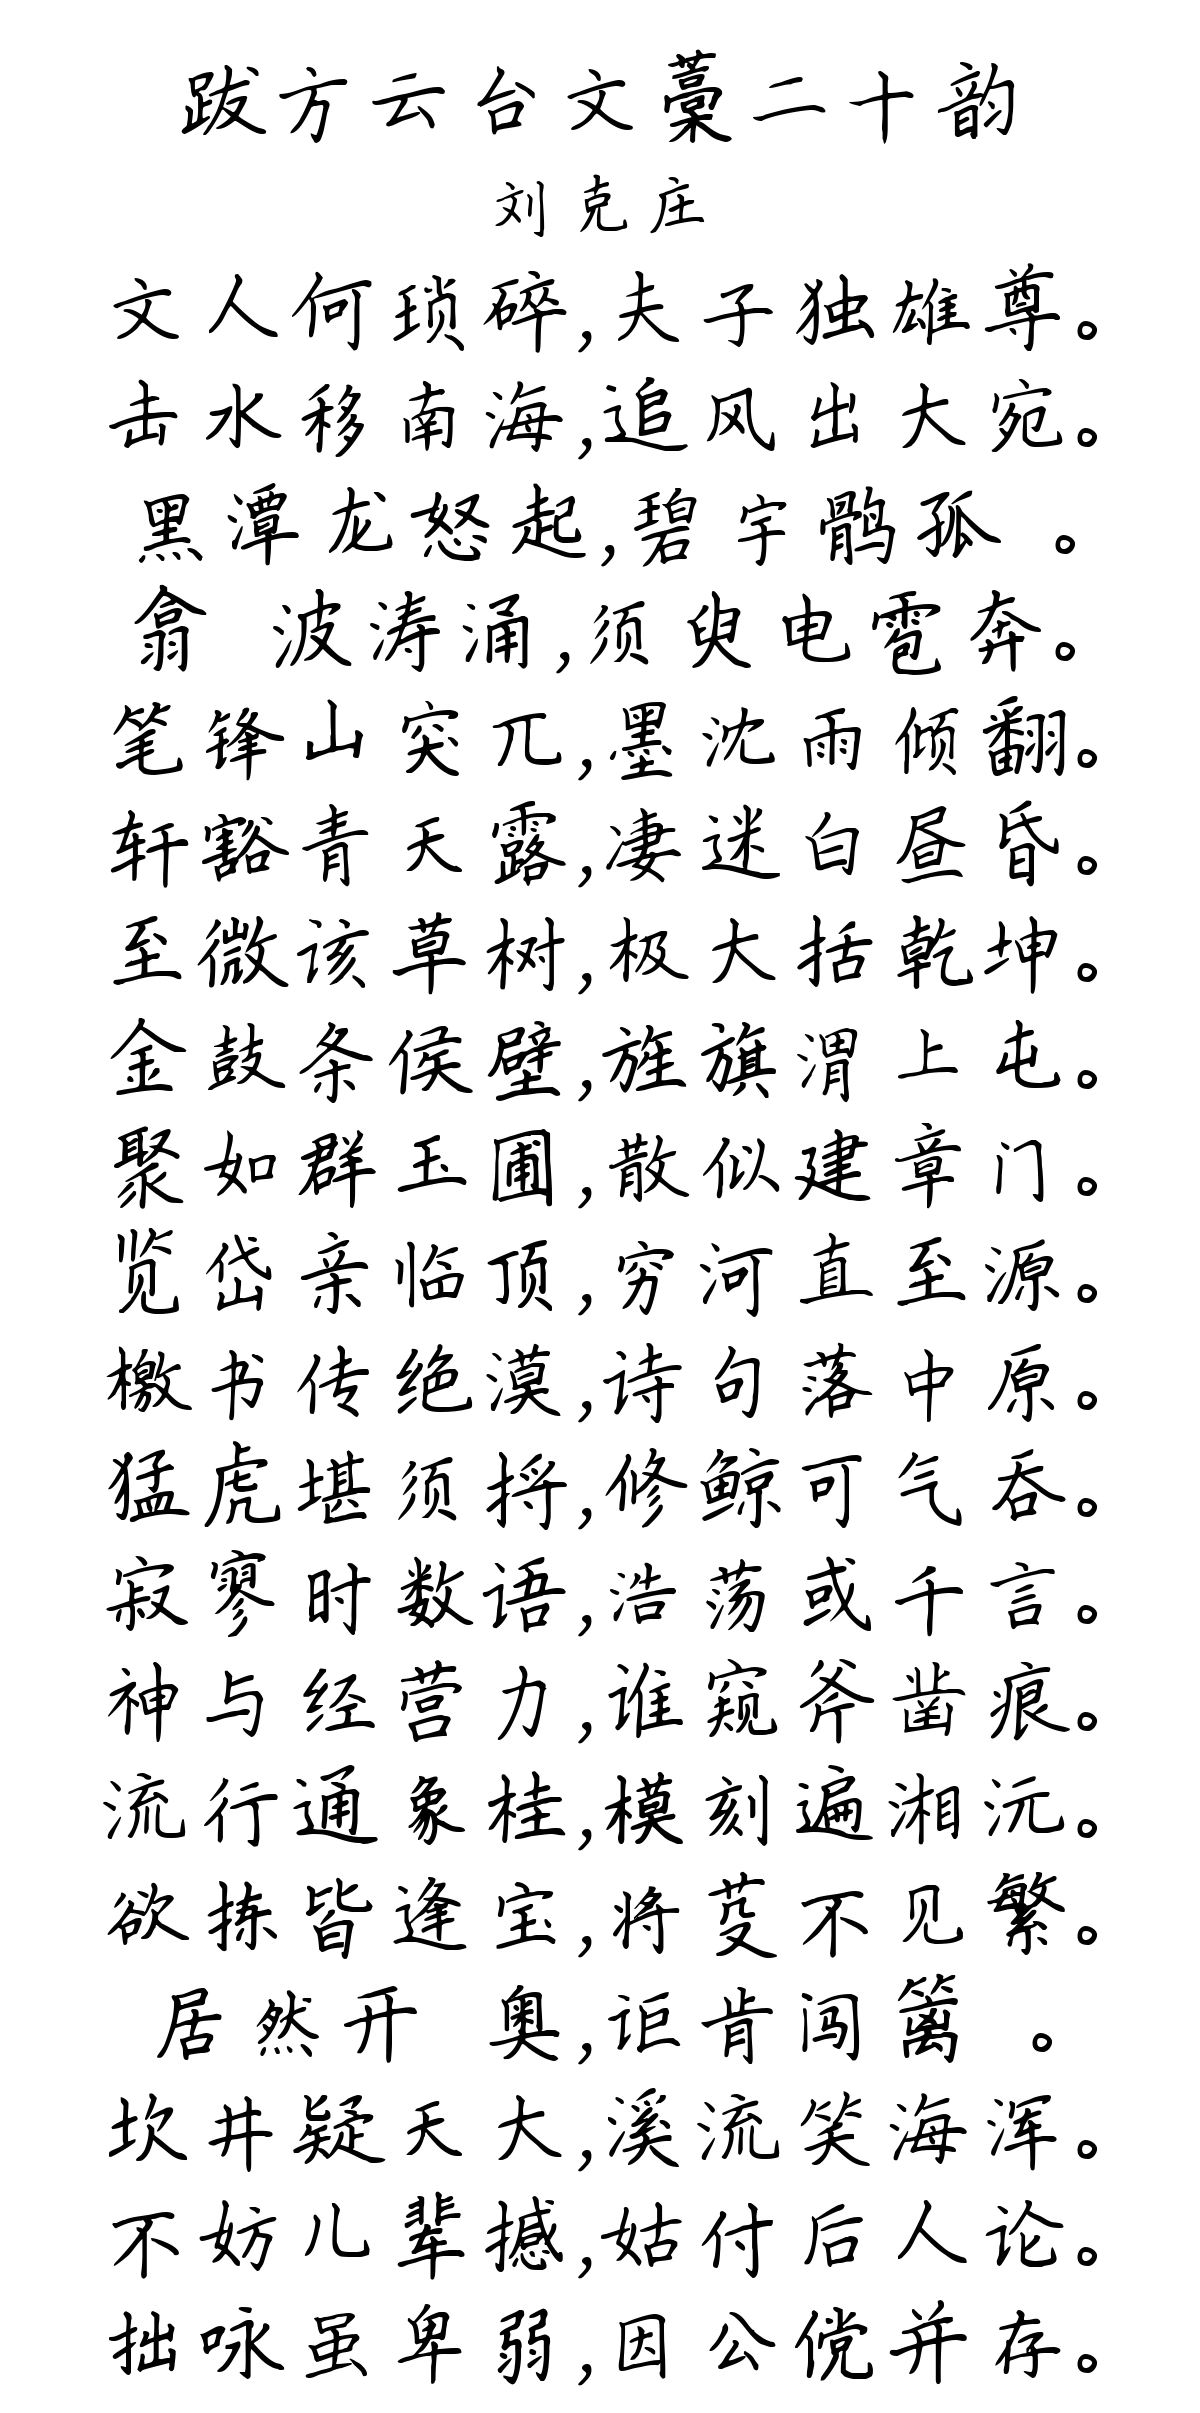 跋方云台文藁二十韵
刘克庄
文人何琐碎,夫子独雄尊。
击水移南海,追风出大宛。
黑潭龙怒起,碧宇鹘孤 。
翕 波涛涌,须臾电雹奔。
笔锋山突兀,墨沈雨倾翻。
轩豁青天露,凄迷白昼昏。
至微该草树,极大括乾坤。
金鼓条侯壁,旌旗渭上屯。
聚如群玉圃,散似建章门。
览岱亲临顶,穷河直至源。
檄书传绝漠,诗句落中原。
猛虎堪须捋,修鲸可气吞。
寂寥时数语,浩荡或千言。
神与经营力,谁窥斧凿痕。
流行通象桂,模刻遍湘沅。
欲拣皆逢宝,将芟不见繁。
居然开 奥,讵肯闯篱 。
坎井疑天大,溪流笑海浑。
不妨儿辈撼,姑付后人论。
拙咏虽卑弱,因公傥并存。